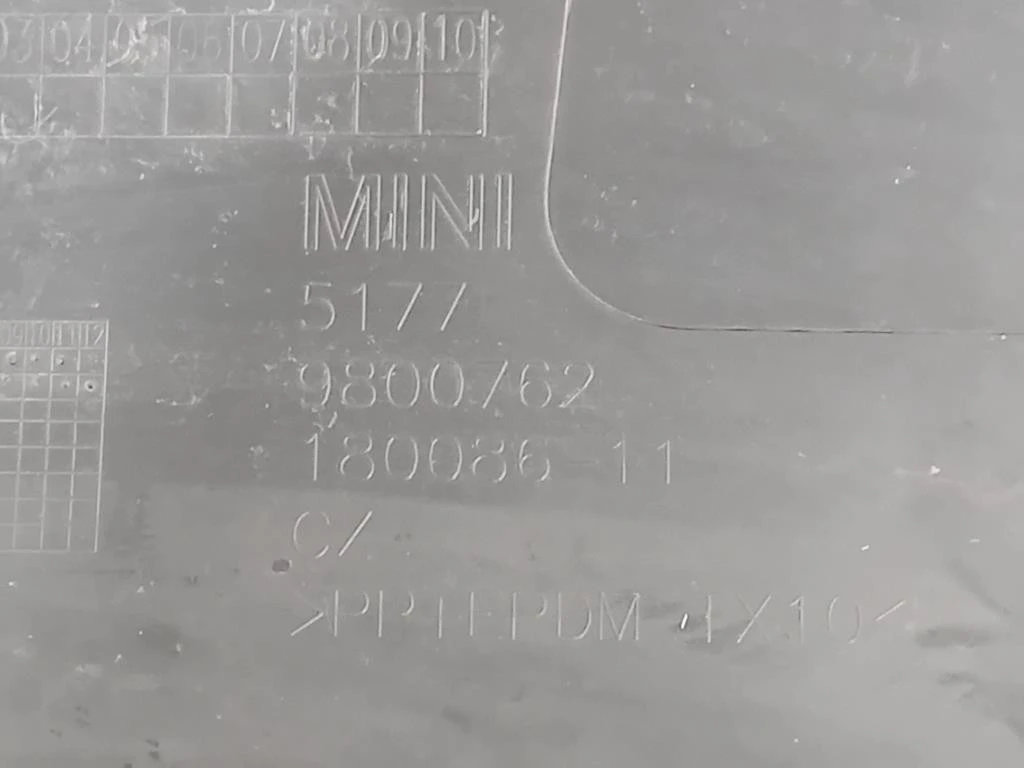 03 04 05 06 07 08 09 10
MINI
5177
9800762
180086-11
9 10 11 12
C/
>PP+EPDM-TX10<